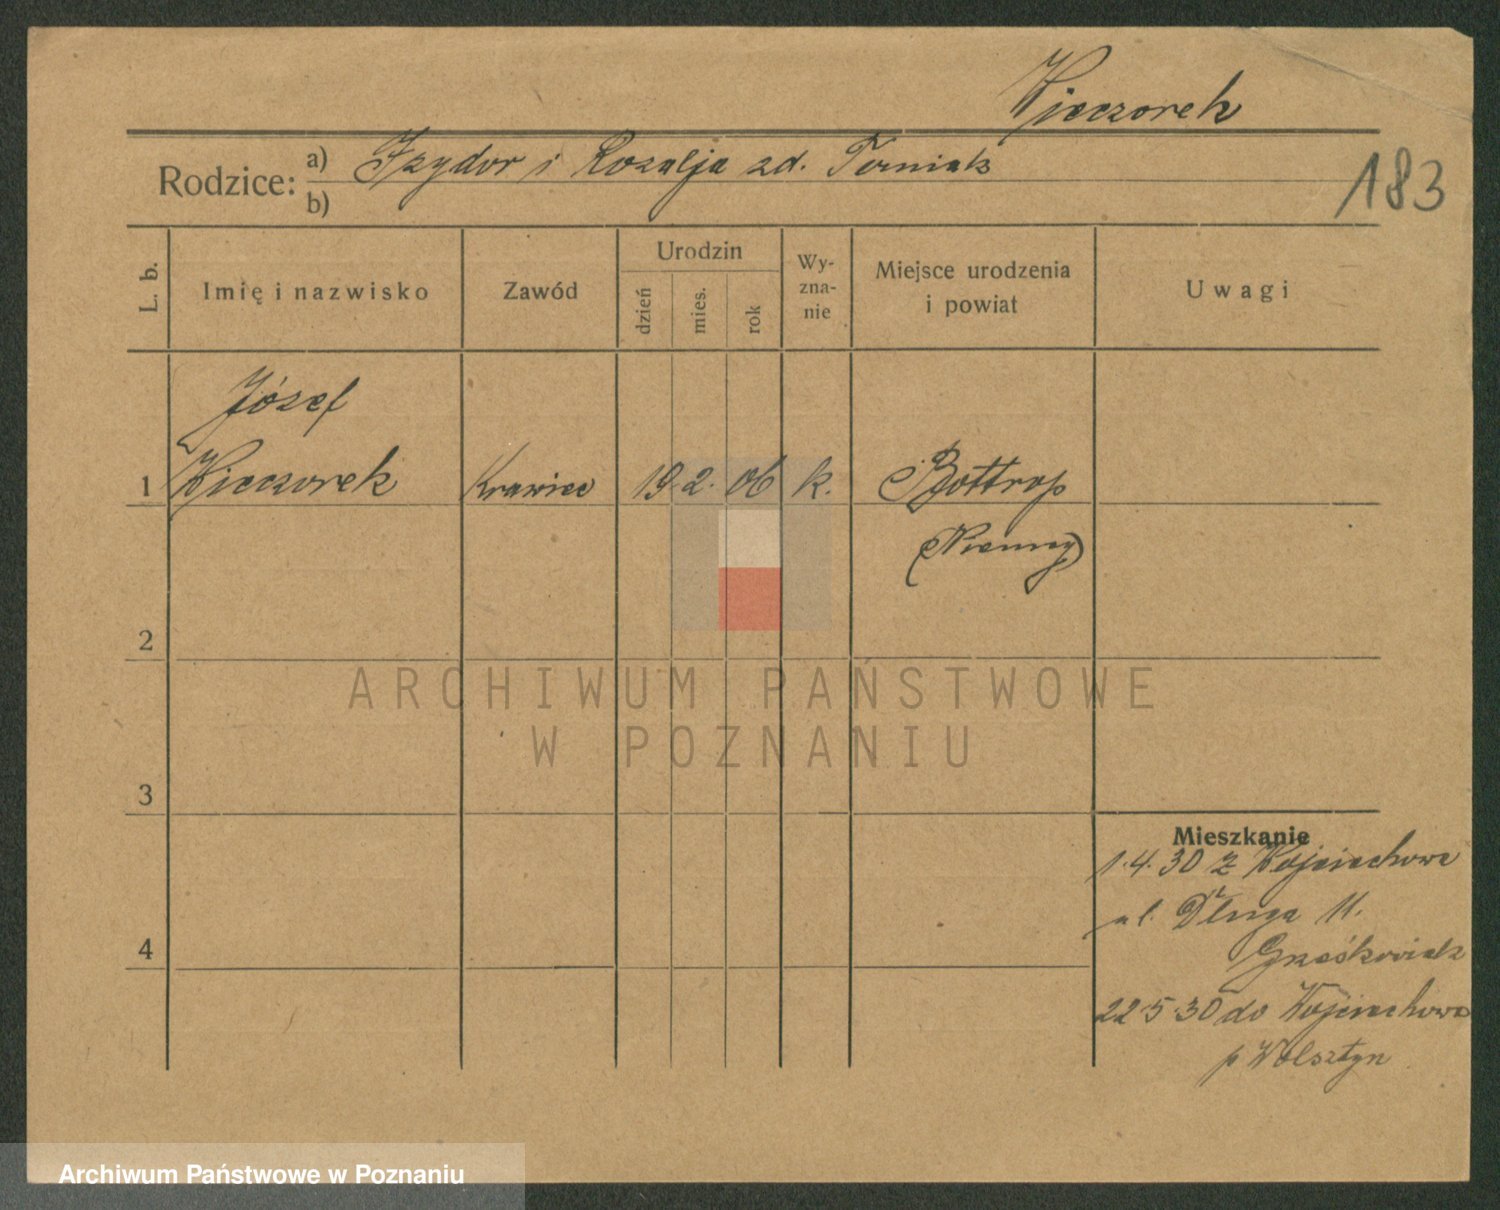 Wieczorek
Rodzice: a) Izydor i Rozalja zd. Torniak
b)
183
L. b.
Imię i nazwisko
Zawód
Urodzin
dzień
mies.
rok
Wy-
zna-
nie
Miejsce urodzenia
i powiat
Uwagi
Józef
1 Wieczorek Krawiec 19. 2. 06 k. Bottrop
(Niemcy)
2
ARCHIWUM PAŃSTWOWE
W POZNANIU
3
Mieszkanie
1.4.30 z Wojciechowa
ul. Długa 11.
Grześkowiak
4
22.5.30 do Wojciechowa
p Wolsztyn
Archiwum Państwowe w Poznaniu